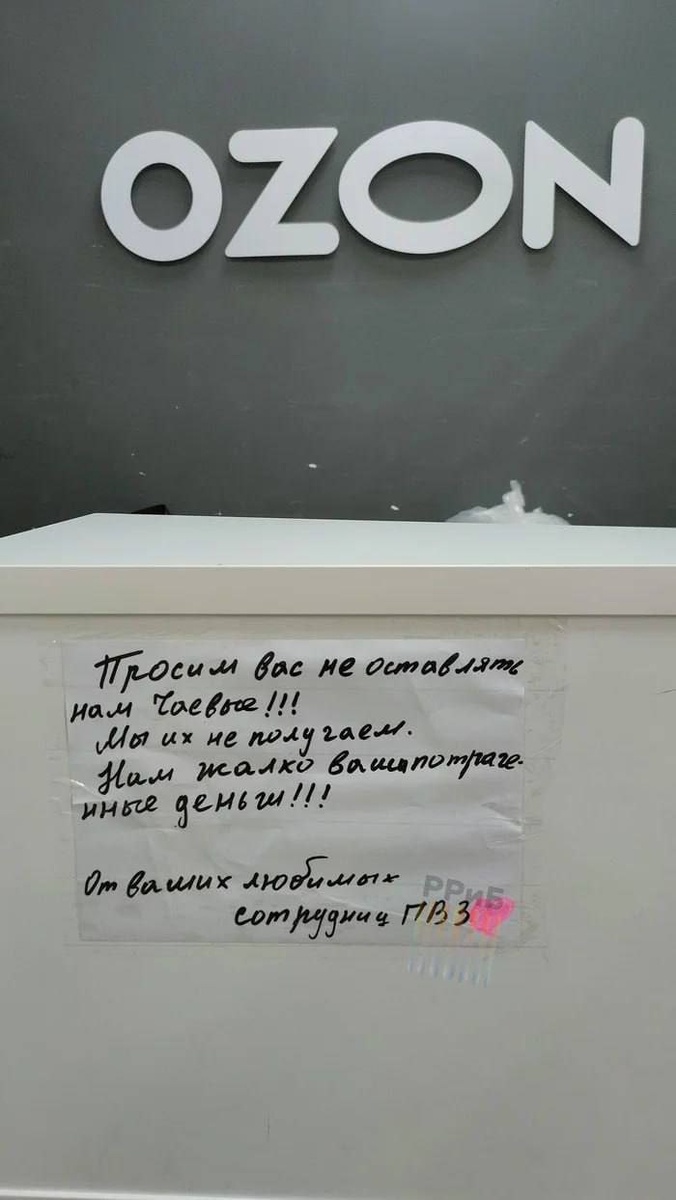 OZON
Просим вас не оставлять
нам Чаевые!!!
Мы их не получаем.
Нам жалко ваши потраче-
нные деньги!!!
От ваших любимых
сотрудниц ПВЗ
РРиБ